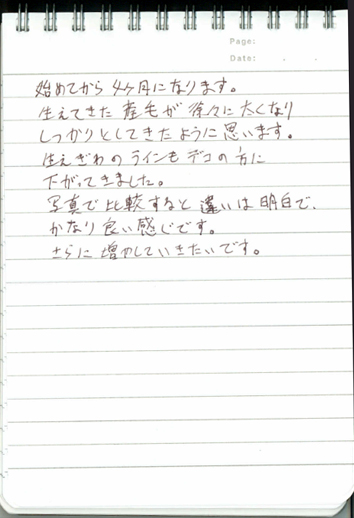 Page:
Date:
始めてから4ヶ月になります。
生えてきた産毛が徐々に太くなり
しっかりとしてきたように思います。
生えぎわのラインもデコの方に
下がってきました。
写真で比較すると違いは明白で、
かなり良い感じです。
さらに増やしていきたいです。